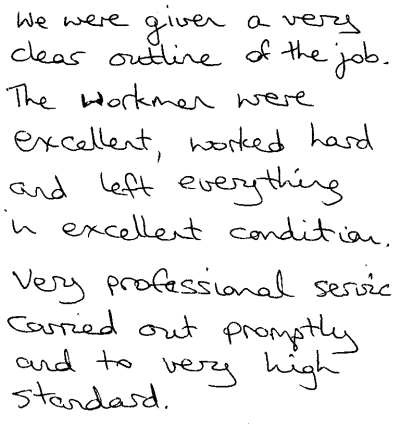 We were given a very
clear outline of the job.
The workmen were
excellent, worked hard
and left everything
in excellent condition.
Very professional servic
carried out promptly
and to very high
standard.